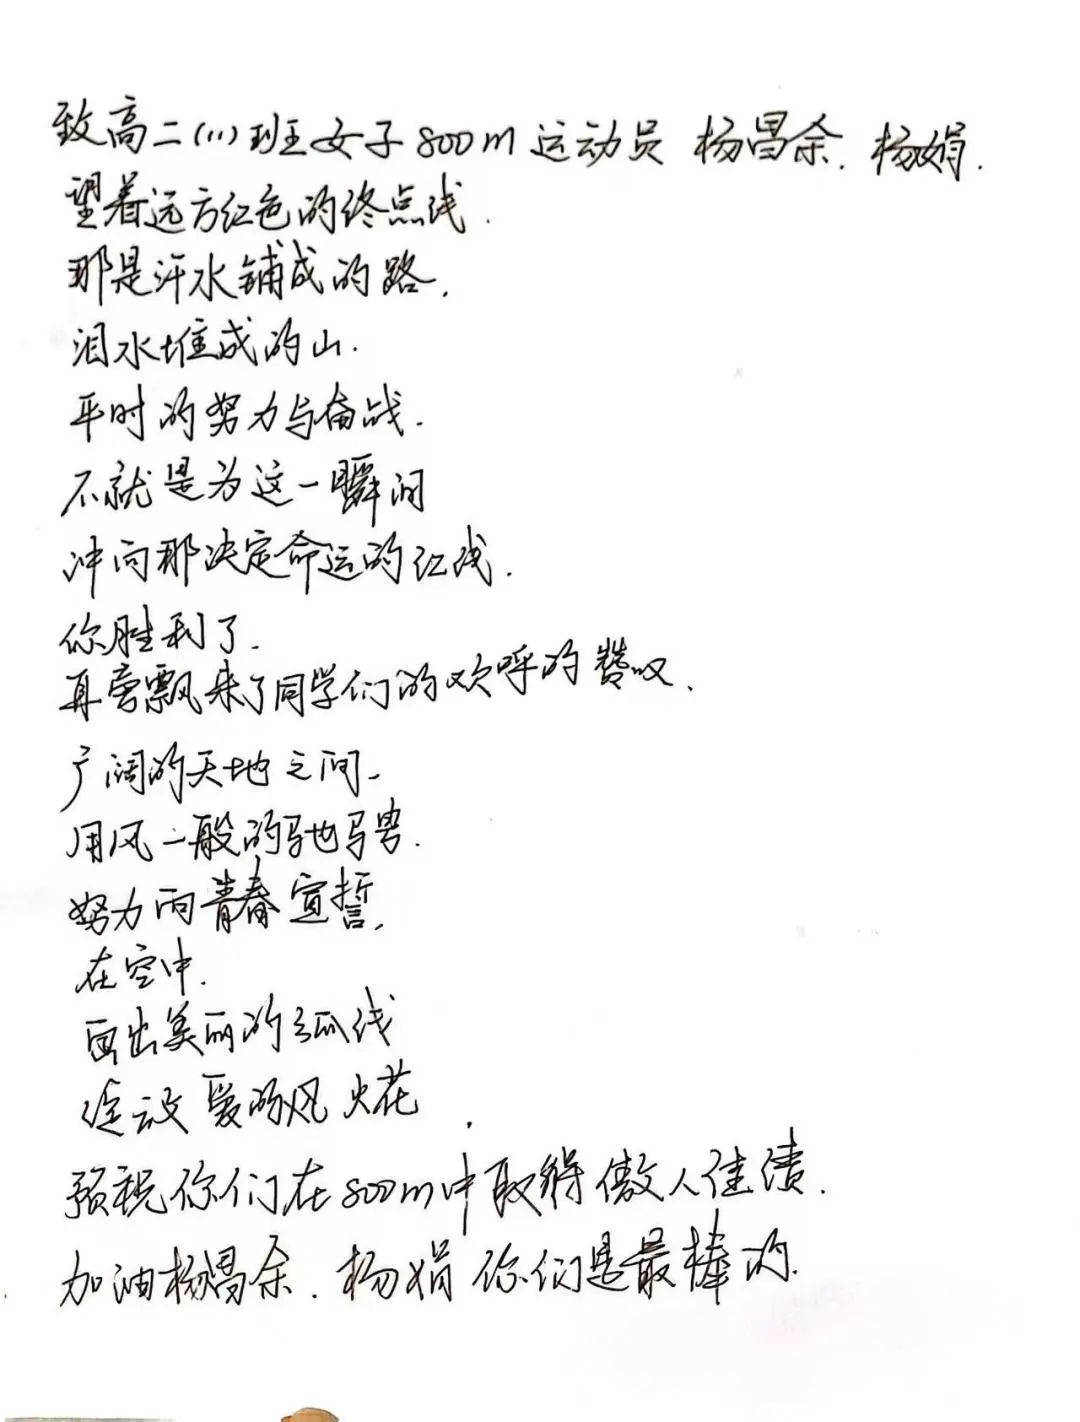 致高二(11)班女子800m运动员 杨昌余、杨娟.
望着远方红色的终点线.
那是汗水铺成的路,
泪水堆成的山.
平时的努力与奋战.
不就是为这一瞬间
冲向那决定命运的红线.
你胜利了.
耳旁飘来了同学们的欢呼的赞叹、
广阔的天地之间、
用风一般的驰骋.
努力向青春宣誓,
在空中.
画出美丽的弧线
爱的 火花.
预祝你们在800m中取得傲人佳绩.
加油杨昌余、杨娟 你们是最棒的.